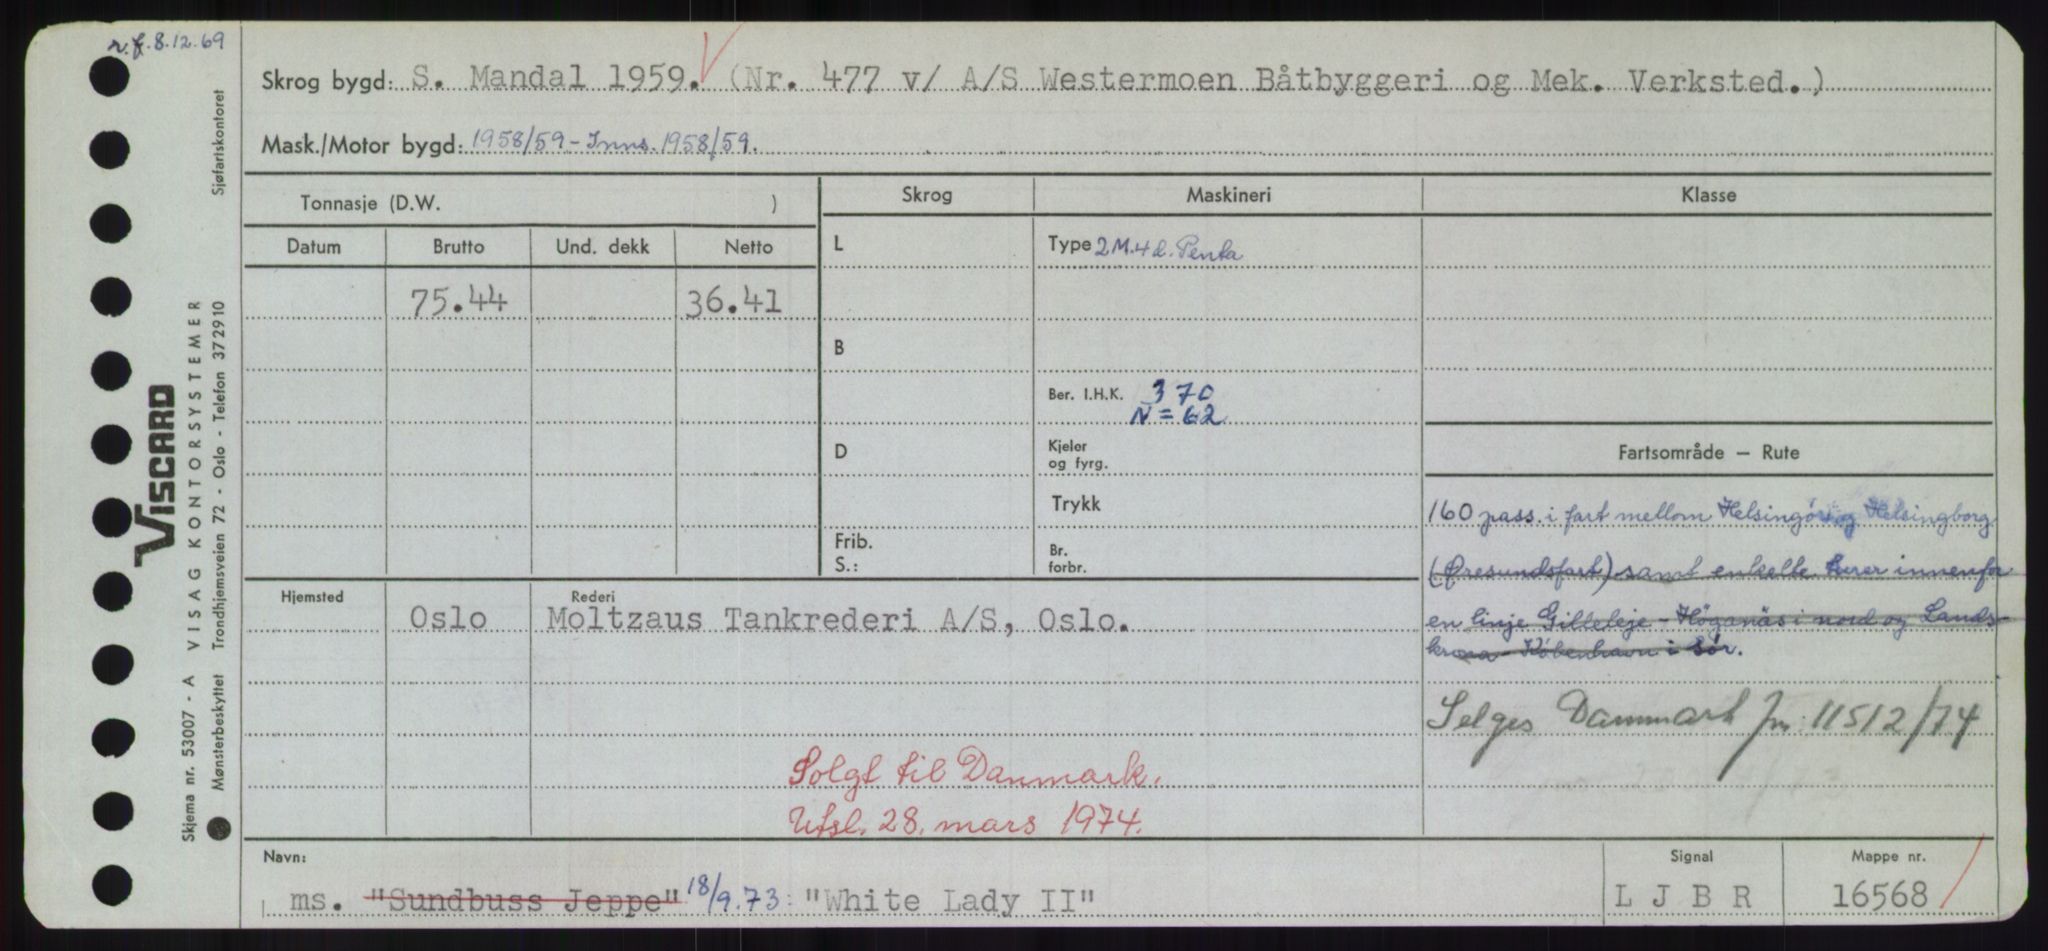 r.f. 8.12.69
Skrog bygd: S. Mandal 1959. (Nr. 477 v/ A/S Westermoen Båtbyggeri og Mek. Verksted.)
Mask./Motor bygd: 1958/59 - Inns. 1958/59.
Tonnasje (D.W. )
Skrog
Maskineri
Klasse
Datum
Brutto
Und. dekk
Netto
L
Type 2 M. 4 d. Penta
75.44
36.41
B
Ber. I.H.K. 370
N = 62
D
Kjeler
og fyrg.
Fartsområde — Rute
Trykk
160 pass. i fart mellom Helsingör og Helsingborg
Frib.
S.:
Br.
forbr.
(Øresundsfart) samt enkelte turer innenfor
en linje Gilleleje - Höganäs i nord og Lands-
krona - København i sør.
Hjemsted
Rederi
Oslo
Moltzaus Tankrederi A/S, Oslo.
Selges Danmark jnr: 11512/74
Solgt til Danmark.
Utsl. 28. mars 1974.
Navn:
Signal
Mappe nr.
ms. "Sundbuss Jeppe" 18/9.73: "White Lady II"
L J B R
16568
Skjema nr. 53007 - A VISAG KONTORSYSTEMER
Mønsterbeskyttet Trondhjemsveien 72 - Oslo - Telefon 372910
Sjøfartskontoret
VISCARD